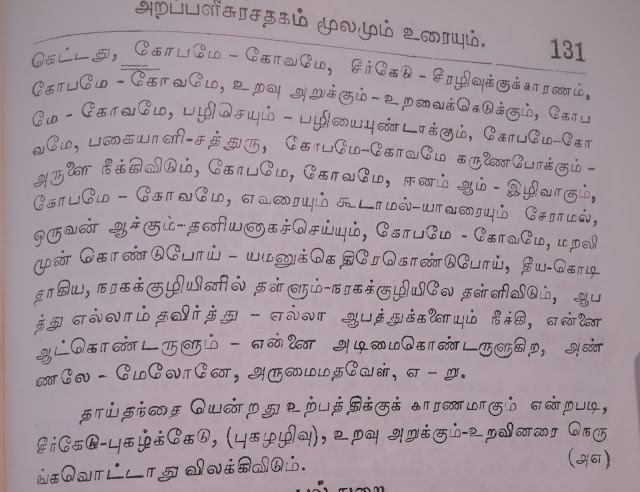 அறப்பளீசுரசதகம் மூலமும் உரையும். 131
கெட்டது, கோபமே - கோவமே, சீர்கேடு - சீரழிவுக்குக்காரணம்,
கோபமே - கோவமே, உறவு அறுக்கும் - உறவைக்கெடுக்கும், கோப
மே - கோவமே, பழிசெயும் - பழியையுண்டாக்கும், கோபமே-கோ
வமே, பகையாளி-சத்துரு, கோபமே-கோவமே கருணைபோக்கும் -
அருளை நீக்கிவிடும், கோபமே, கோவமே, ஈனம் ஆம் - இழிவாகும்,
கோபமே - கோவமே, எவரையும் கூடாமல்-யாவரையும் சேராமல்,
ஒருவன் ஆக்கும்-தனியனாகச்செய்யும், கோபமே - கோவமே, மறலி
முன் கொண்டுபோய் - யமனுக்கெதிரேகொண்டுபோய், தீய-கொடி
தாகிய, நரகக்குழியினில் தள்ளும்-நரகக்குழியிலே தள்ளிவிடும், ஆப
த்து எல்லாம் தவிர்த்து - எல்லா ஆபத்துக்களையும் நீக்கி, என்னை
ஆட்கொண்டருளும் - என்னை அடிமைகொண்டருளுகிற, அண்
ணலே - மேலோனே, அருமைமதவேள், எ - று.
தாய்தந்தை யென்றது உற்பத்திக்குக் காரணமாகும் என்றபடி,
சீர்கேடு-புகழ்க்கேடு, (புகழழிவு), உறவு அறுக்கும்-உறவினரை நெரு
ங்கவொட்டாது விலக்கிவிடும். (அஎ)